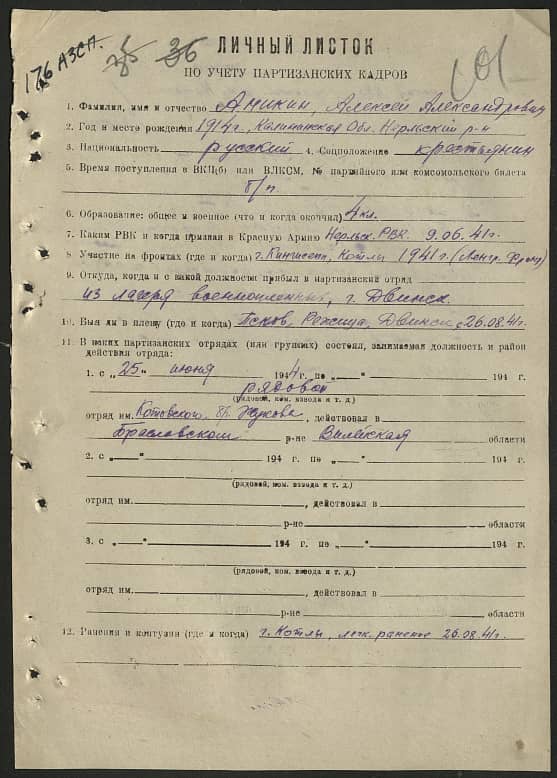 176 АЗСП.
36
ЛИЧНЫЙ ЛИСТОК
ПО УЧЕТУ ПАРТИЗАНСКИХ КАДРОВ
1. Фамилия, имя и отчество Аникин, Алексей Александрович
2. Год и место рождения 1914 г, Калининская Обл. Нерльский р-н
3. Национальность русский 4. Соцположение крестьянин
5. Время поступления в ВКП(б) или ВЛКСМ, № партийного или комсомольского билета
б/п
6. Образование: общее и военное (что и когда окончил) 4 кл.
7. Каким РВК и когда призван в Красную Армию Нерльск. РВК. 9.06.41 г.
8 Участие на фронтах (где и когда) г. Кингисепп, Котлы 1941 г. (Ленгр. Фронт)
9. Откуда, когда и с какой должности прибыл в партизанский отряд
из лагеря военнопленных, г. Двинск.
10. Был ли в плену (где и когда) Псков, Режица, Двинск с 26.08.41 г.
11. В каких партизанских отрядах (или группах) состоял, занимаемая должность и район
действия отряда:
1. с „25" июня 1944 г. по „—" 194 г.
рядовой
(рядовой, ком. взвода и т. д.)
отряд им. Котовского, бр. Жукова, действовал в
Браславском р-не Вилейская области
2. с „—" 194 г. по „—" 194 г.
(рядовой, ком. взвода и т. д.)
отряд им. , действовал в
р-не области
3. с „—" 194 г. по „—" 194 г.
(рядовой, ком. взвода и т. д.)
отряд им. , действовал в
р-не области
12. Ранения и контузии (где и когда) г. Котлы, легк. ранение 26.08.41 г.